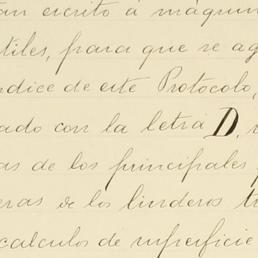 tan escrito á máquin
tiles, para que se ag
ndice de este Protocolo,
ado con la letra D,
as de los principales
eras de los linderos t
calculos de superficie